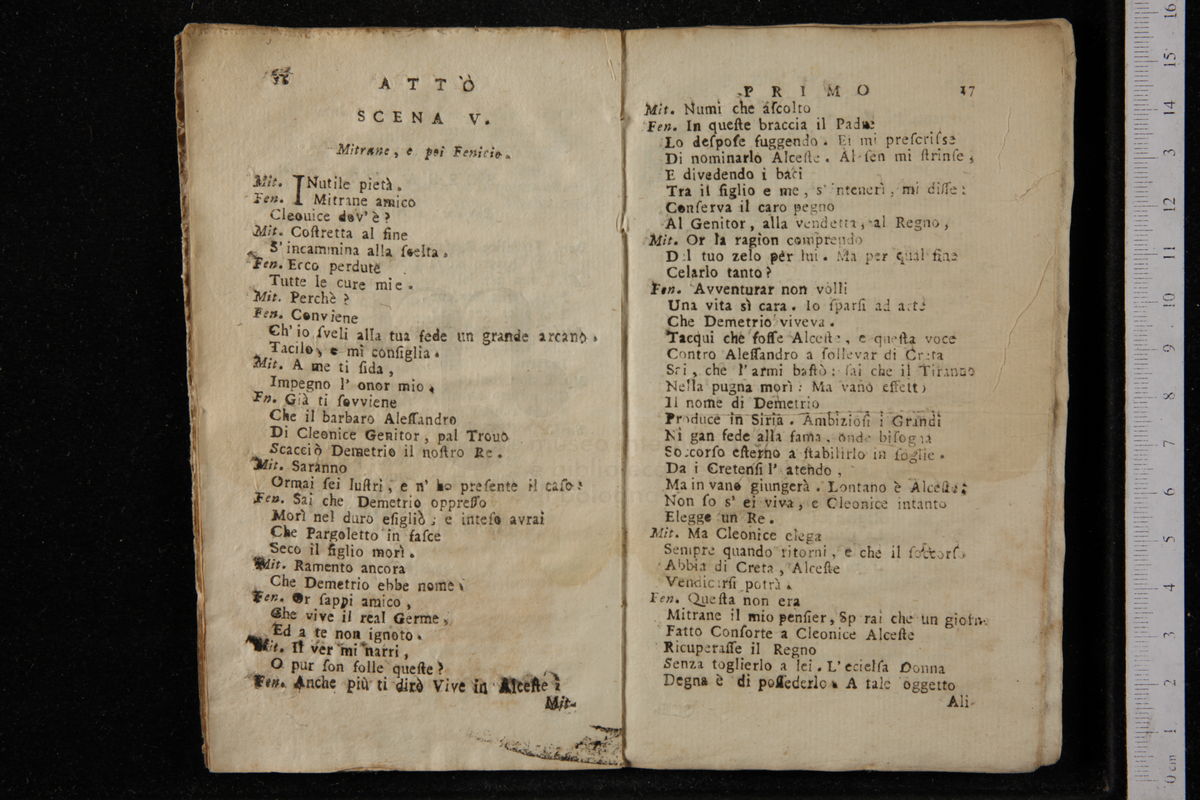 16
ATTO
SCENA V.
Mitrane, e poi Fenicio.
Mit. INutile pietà.
Fen. Mitrane amico
Cleouice dov' è?
Mit. Coſtretta al fine
S' incammina alla ſcelta.
Fen. Ecco perdute
Tutte le cure mie.
Mit. Perchè?
Fen. Conviene
Ch' io ſveli alla tua fede un grande arcano.
Tacilo, e mi conſiglia.
Mit. A me ti fida,
Impegno l' onor mio.
Fn. Già ti ſovviene
Che il barbaro Aleſſandro
Di Cleonice Genitor, pal Trouo
Scacciò Demetrio il noſtro Re.
Mit. Saranno
Ormai ſei luſtri, e n' ho preſente il caſo:
Fen. Sai che Demetrio oppreſſo
Morì nel duro eſigliò; e inteſo avrai
Che Pargoletto in faſce
Seco il figlio morì.
Mit. Ramento ancora
Che Demetrio ebbe nome.
Fen. Or ſappi amico,
Che vive il real Germe,
Ed a te non ignoto.
Mit. Il ver mi narri,
O pur ſon folle queſte?
Fen. Anche più ti dirò Vive in Alceſte:
Mit.
PRIMO
17
Mit. Numi che aſcolto
Fen. In queſte braccia il Padre
Lo deſpoſe fuggendo. Ei mi preſcriſse
Di nominarlo Alceſte. Al ſen mi ſtrinſe,
E divedendo i baci
Tra il figlio e me, s' intenerì, mi diſſe:
Conſerva il caro pegno
Al Genitor, alla vendetta, al Regno,
Mit. Or la ragion comprendo
Del tuo zelo per lui. Ma per qual fine
Celarlo tanto?
Fen. Avventurar non volli
Una vita sì cara. Io ſparſi ad arte
Che Demetrio viveva.
Tacqui che foſſe Alceſte, e queſta voce
Contro Aleſſandro a ſollevar di Creta
Sei, che l' armi baſtò: ſai che il Tiranno
Nella pugna morì: Ma vano effetto
Il nome di Demetrio
Produce in Siria. Ambizioſi i Grandi
Ni gan fede alla fama, onde biſogna
Soccorſo eſterno a ſtabilirlo in ſoglie.
Da i Cretenſi l' atendo,
Ma in vano giungerà. Lontano è Alceſte;
Non ſo s' ei viva, e Cleonice intanto
Elegge un Re.
Mit. Ma Cleonice elega
Sempre quando ritorni, e che il ſoccorſo
Abbia di Creta, Alceſte
Vendicarſi potrà.
Fen. Queſta non era
Mitrane il mio penſier, Sp rai che un giorno
Fatto Conſorte a Cleonice Alceſte
Ricuperaſſe il Regno
Senza toglierlo a lei. L' ecielſa Donna
Degna è di poſſederlo. A tale oggetto
Ali-